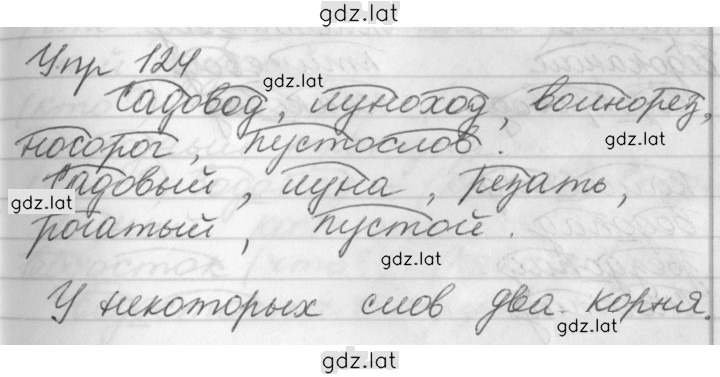 gdz.lat
Упр 124
gdz.lat
Садовод, луноход, волнорез,
gdz.lat
носорог, пустослов.
Садовый, луна, резать,
gdz.lat
рогатый, пустой.
gdz.lat
У некоторых слов два корня.
gdz.lat
gdz.lat